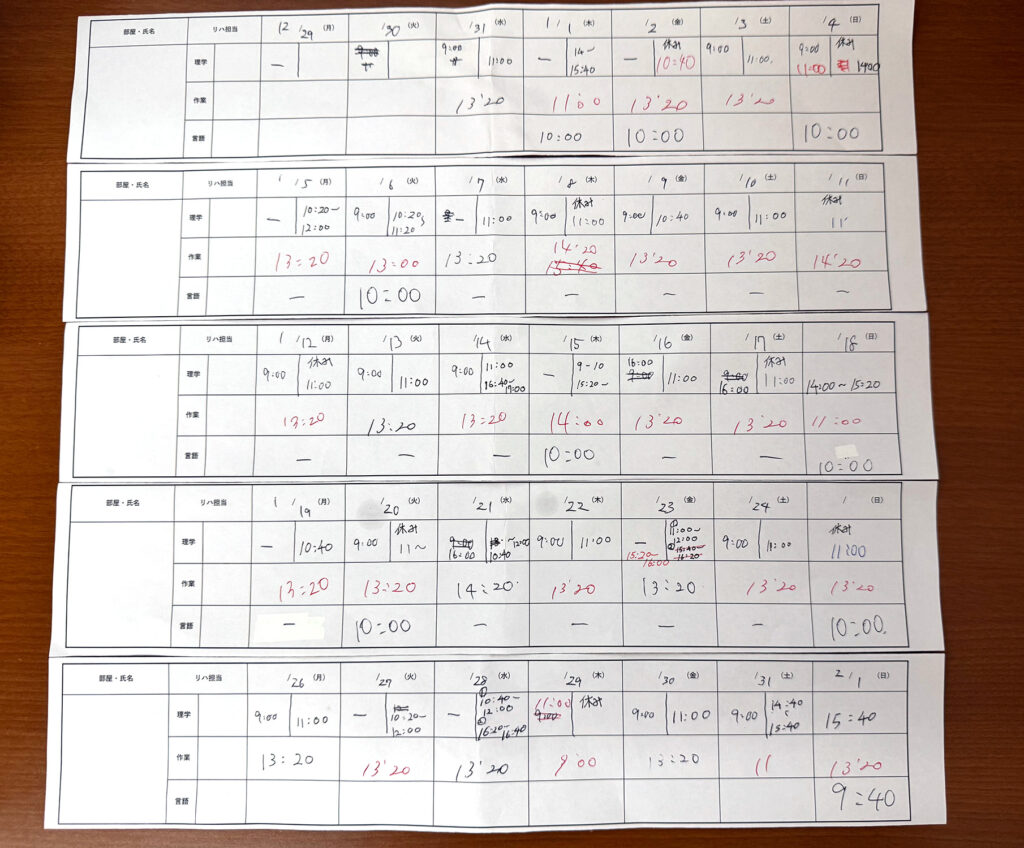 部屋・氏名 リハ担当 12/29 (月) /30 (火) /31 (水) 1/1 (木) /2 (金) /3 (土) /4 (日)
理学 — 9:00 11:00 — 14〜 15:40 — 休み 10:40 9:00 11:00 9:00 11:00 休み 14:00
作業 13:20 11:00 13:20 13:20
言語 10:00 10:00 10:00
部屋・氏名 リハ担当 1/5 (月) /6 (火) /7 (水) /8 (木) /9 (金) /10 (土) /11 (日)
理学 — 10:20〜 12:00 9:00 10:20〜 11:20 — 11:00 9:00 休み 11:00 9:00 10:40 9:00 11:00 休み
作業 13:20 13:00 13:20 14:20 13:20 13:20 14:20
言語 — 10:00 — — — — —
部屋・氏名 リハ担当 1/12 (月) /13 (火) /14 (水) /15 (木) /16 (金) /17 (土) /18 (日)
理学 9:00 休み 11:00 9:00 11:00 9:00 11:00 16:40〜 17:00 — 9-10 15:20〜 16:00 9:00 11:00 9:00 16:00 休み 11:00 14:00〜15:20
作業 13:20 13:20 13:20 14:00 13:20 13:20 11:00
言語 — — — 10:00 — — 10:00
部屋・氏名 リハ担当 1/19 (月) /20 (火) /21 (水) /22 (木) /23 (金) /24 (土) / (日)
理学 — 10:40 9:00 休み 11〜 9:00 16:00 〜12:00 10:40 9:00 11:00 — 15:20〜 16:00 ①11:00〜 12:00 ②15:40〜 16:20 9:00 11:00 休み 11:00
作業 13:20 13:20 14:20 13:20 13:20 13:20 13:20
言語 — 10:00 — — — — 10:00
部屋・氏名 リハ担当 /26 (月) /27 (火) /28 (水) /29 (木) /30 (金) /31 (土) 2/1 (日)
理学 9:00 11:00 — 10:20〜 12:00 — ①10:40〜 12:00 ②16:20〜 16:40 11:00 9:00 休み 9:00 11:00 9:00 14:40 〜 15:40 15:40
作業 13:20 13:20 13:20 9:00 13:20 11 13:20
言語 9:40